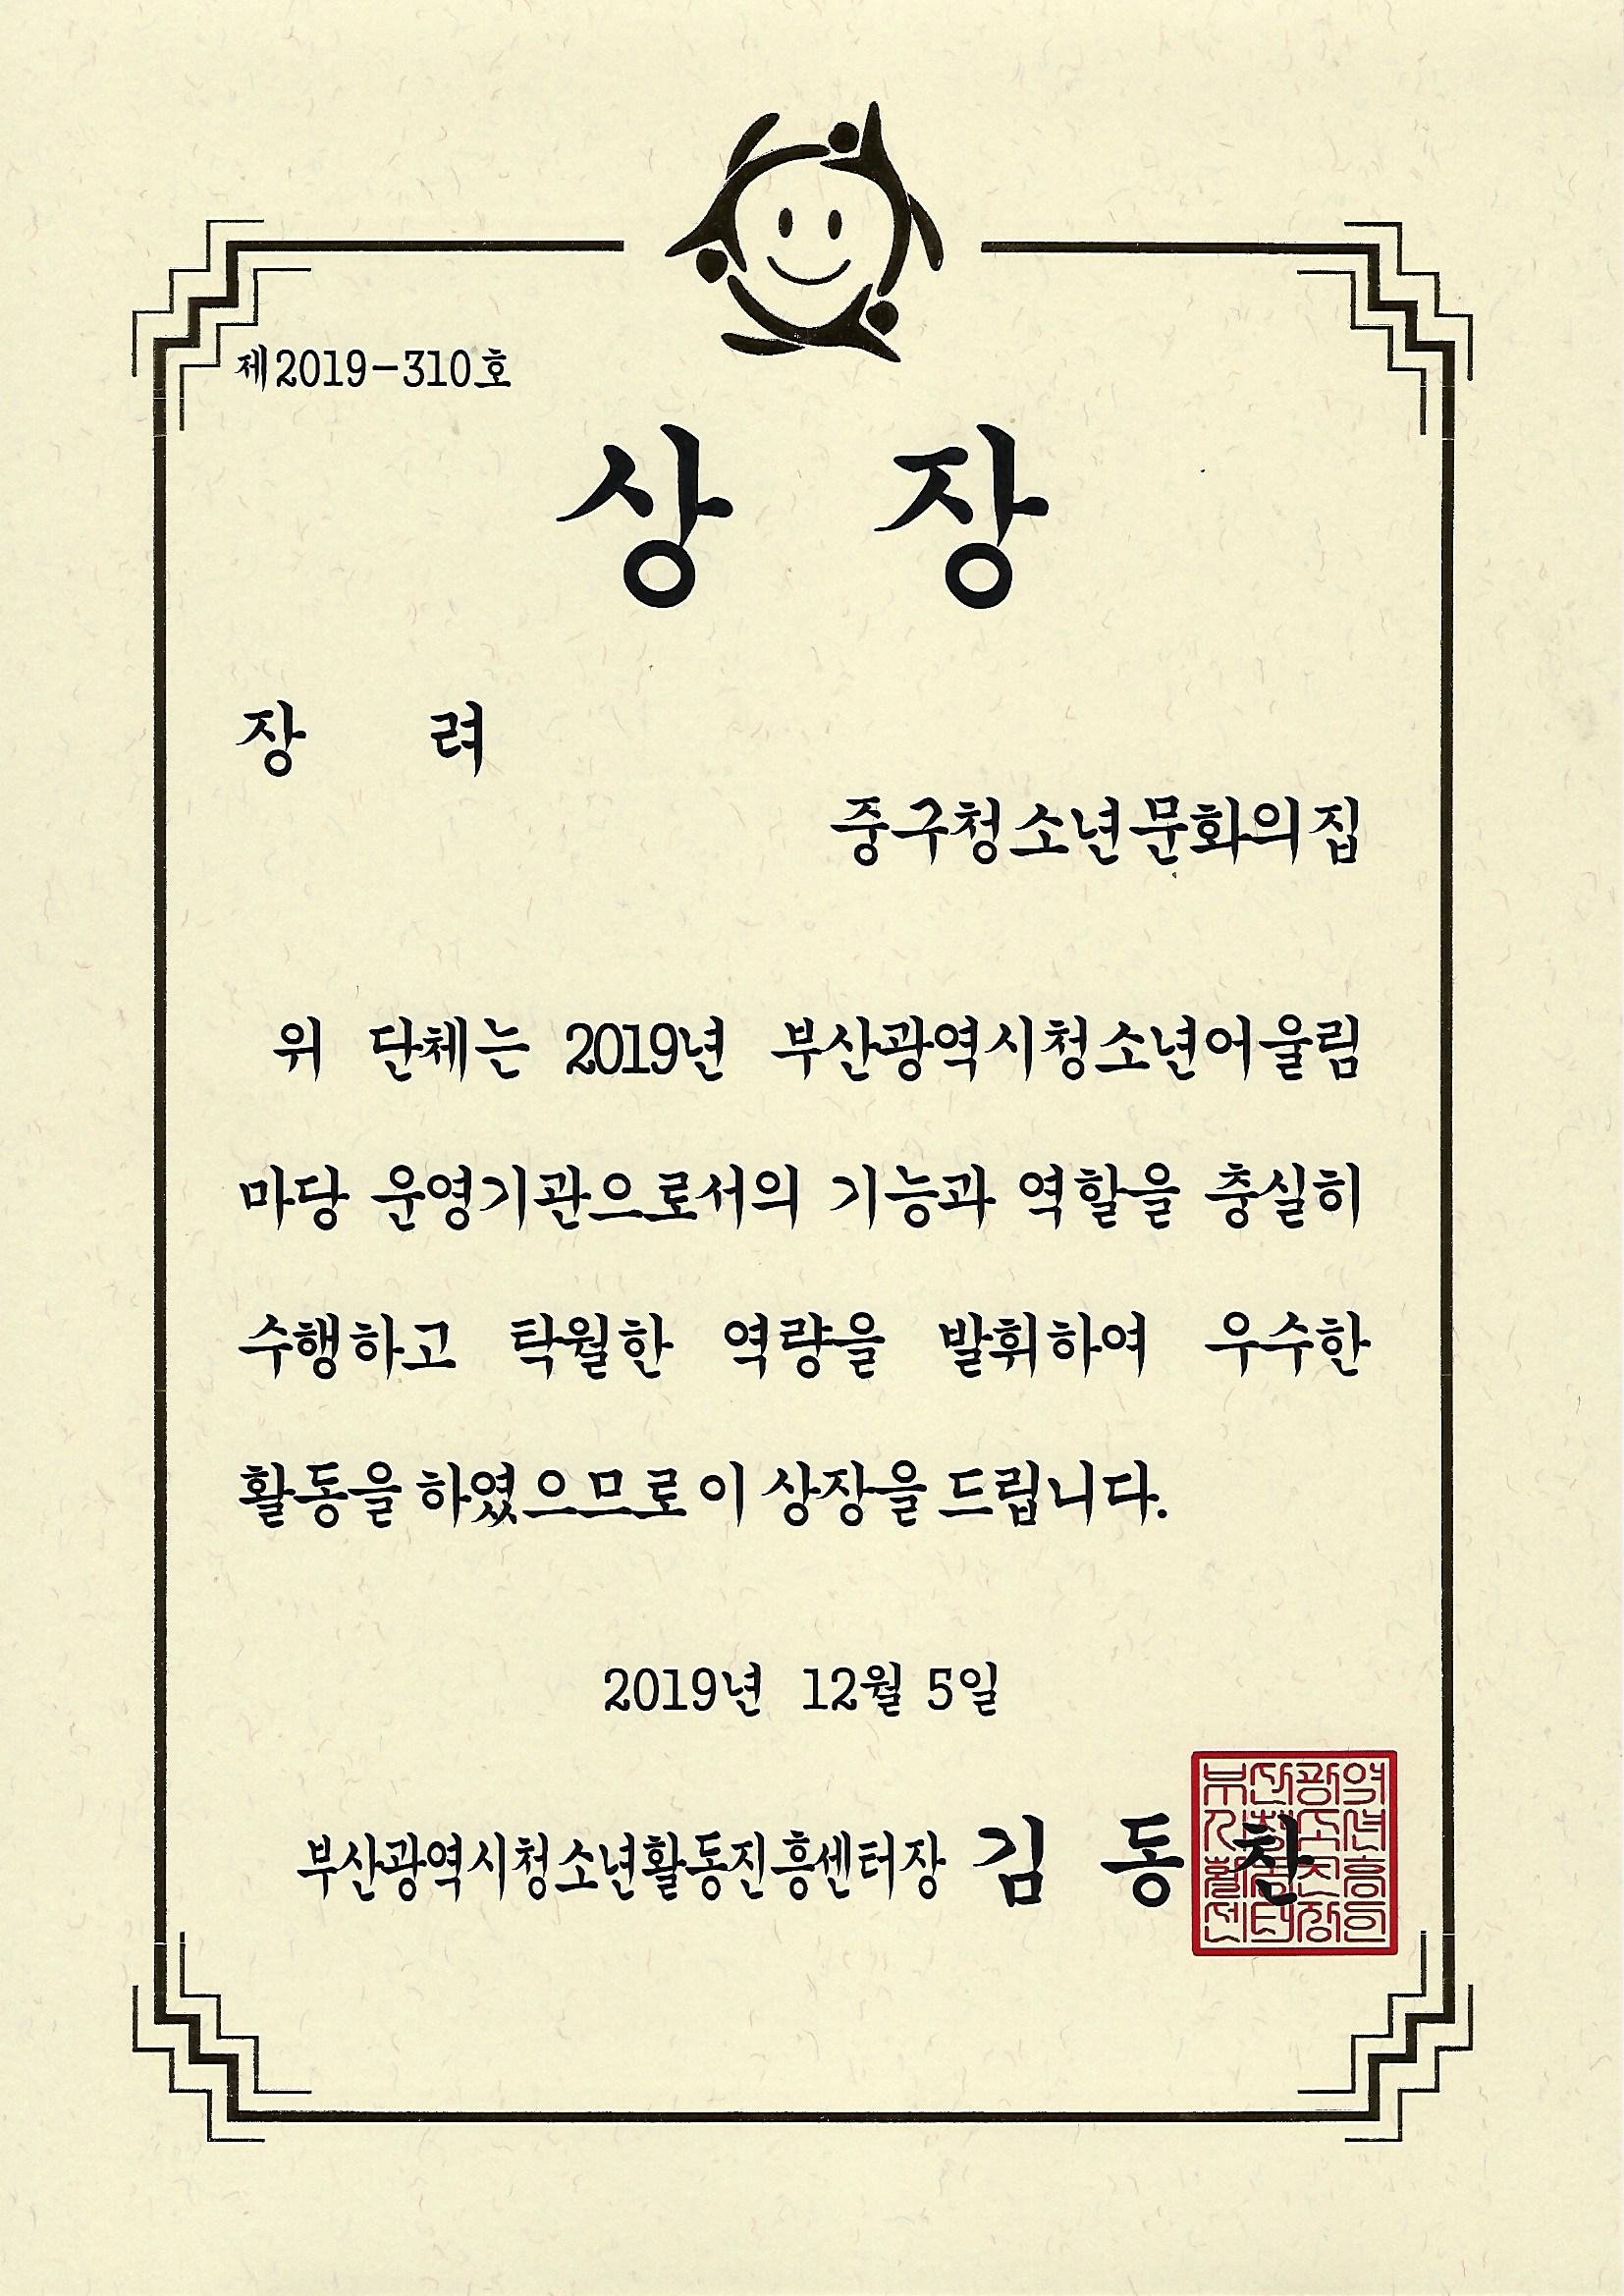 제2019-310호
상 장
장 려
중구청소년문화의집
위 단체는 2019년 부산광역시청소년어울림
마당 운영기관으로서의 기능과 역할을 충실히
수행하고 탁월한 역량을 발휘하여 우수한
활동을 하였으므로 이 상장을 드립니다.
2019년 12월 5일
부산광역시청소년활동진흥센터장 김 동 찬
부산광역
시청소년
활동진흥
센터장의인